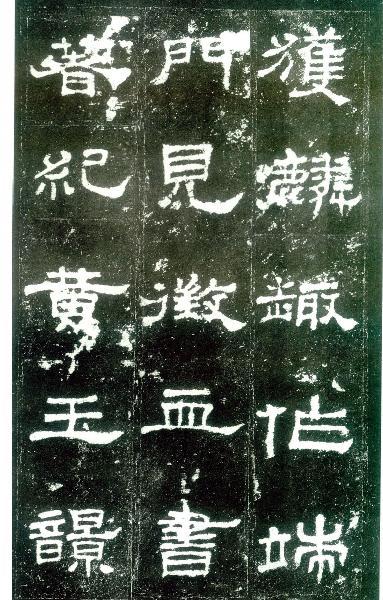 獲麟趣作端
門見徵血書
著紀黃玉韻